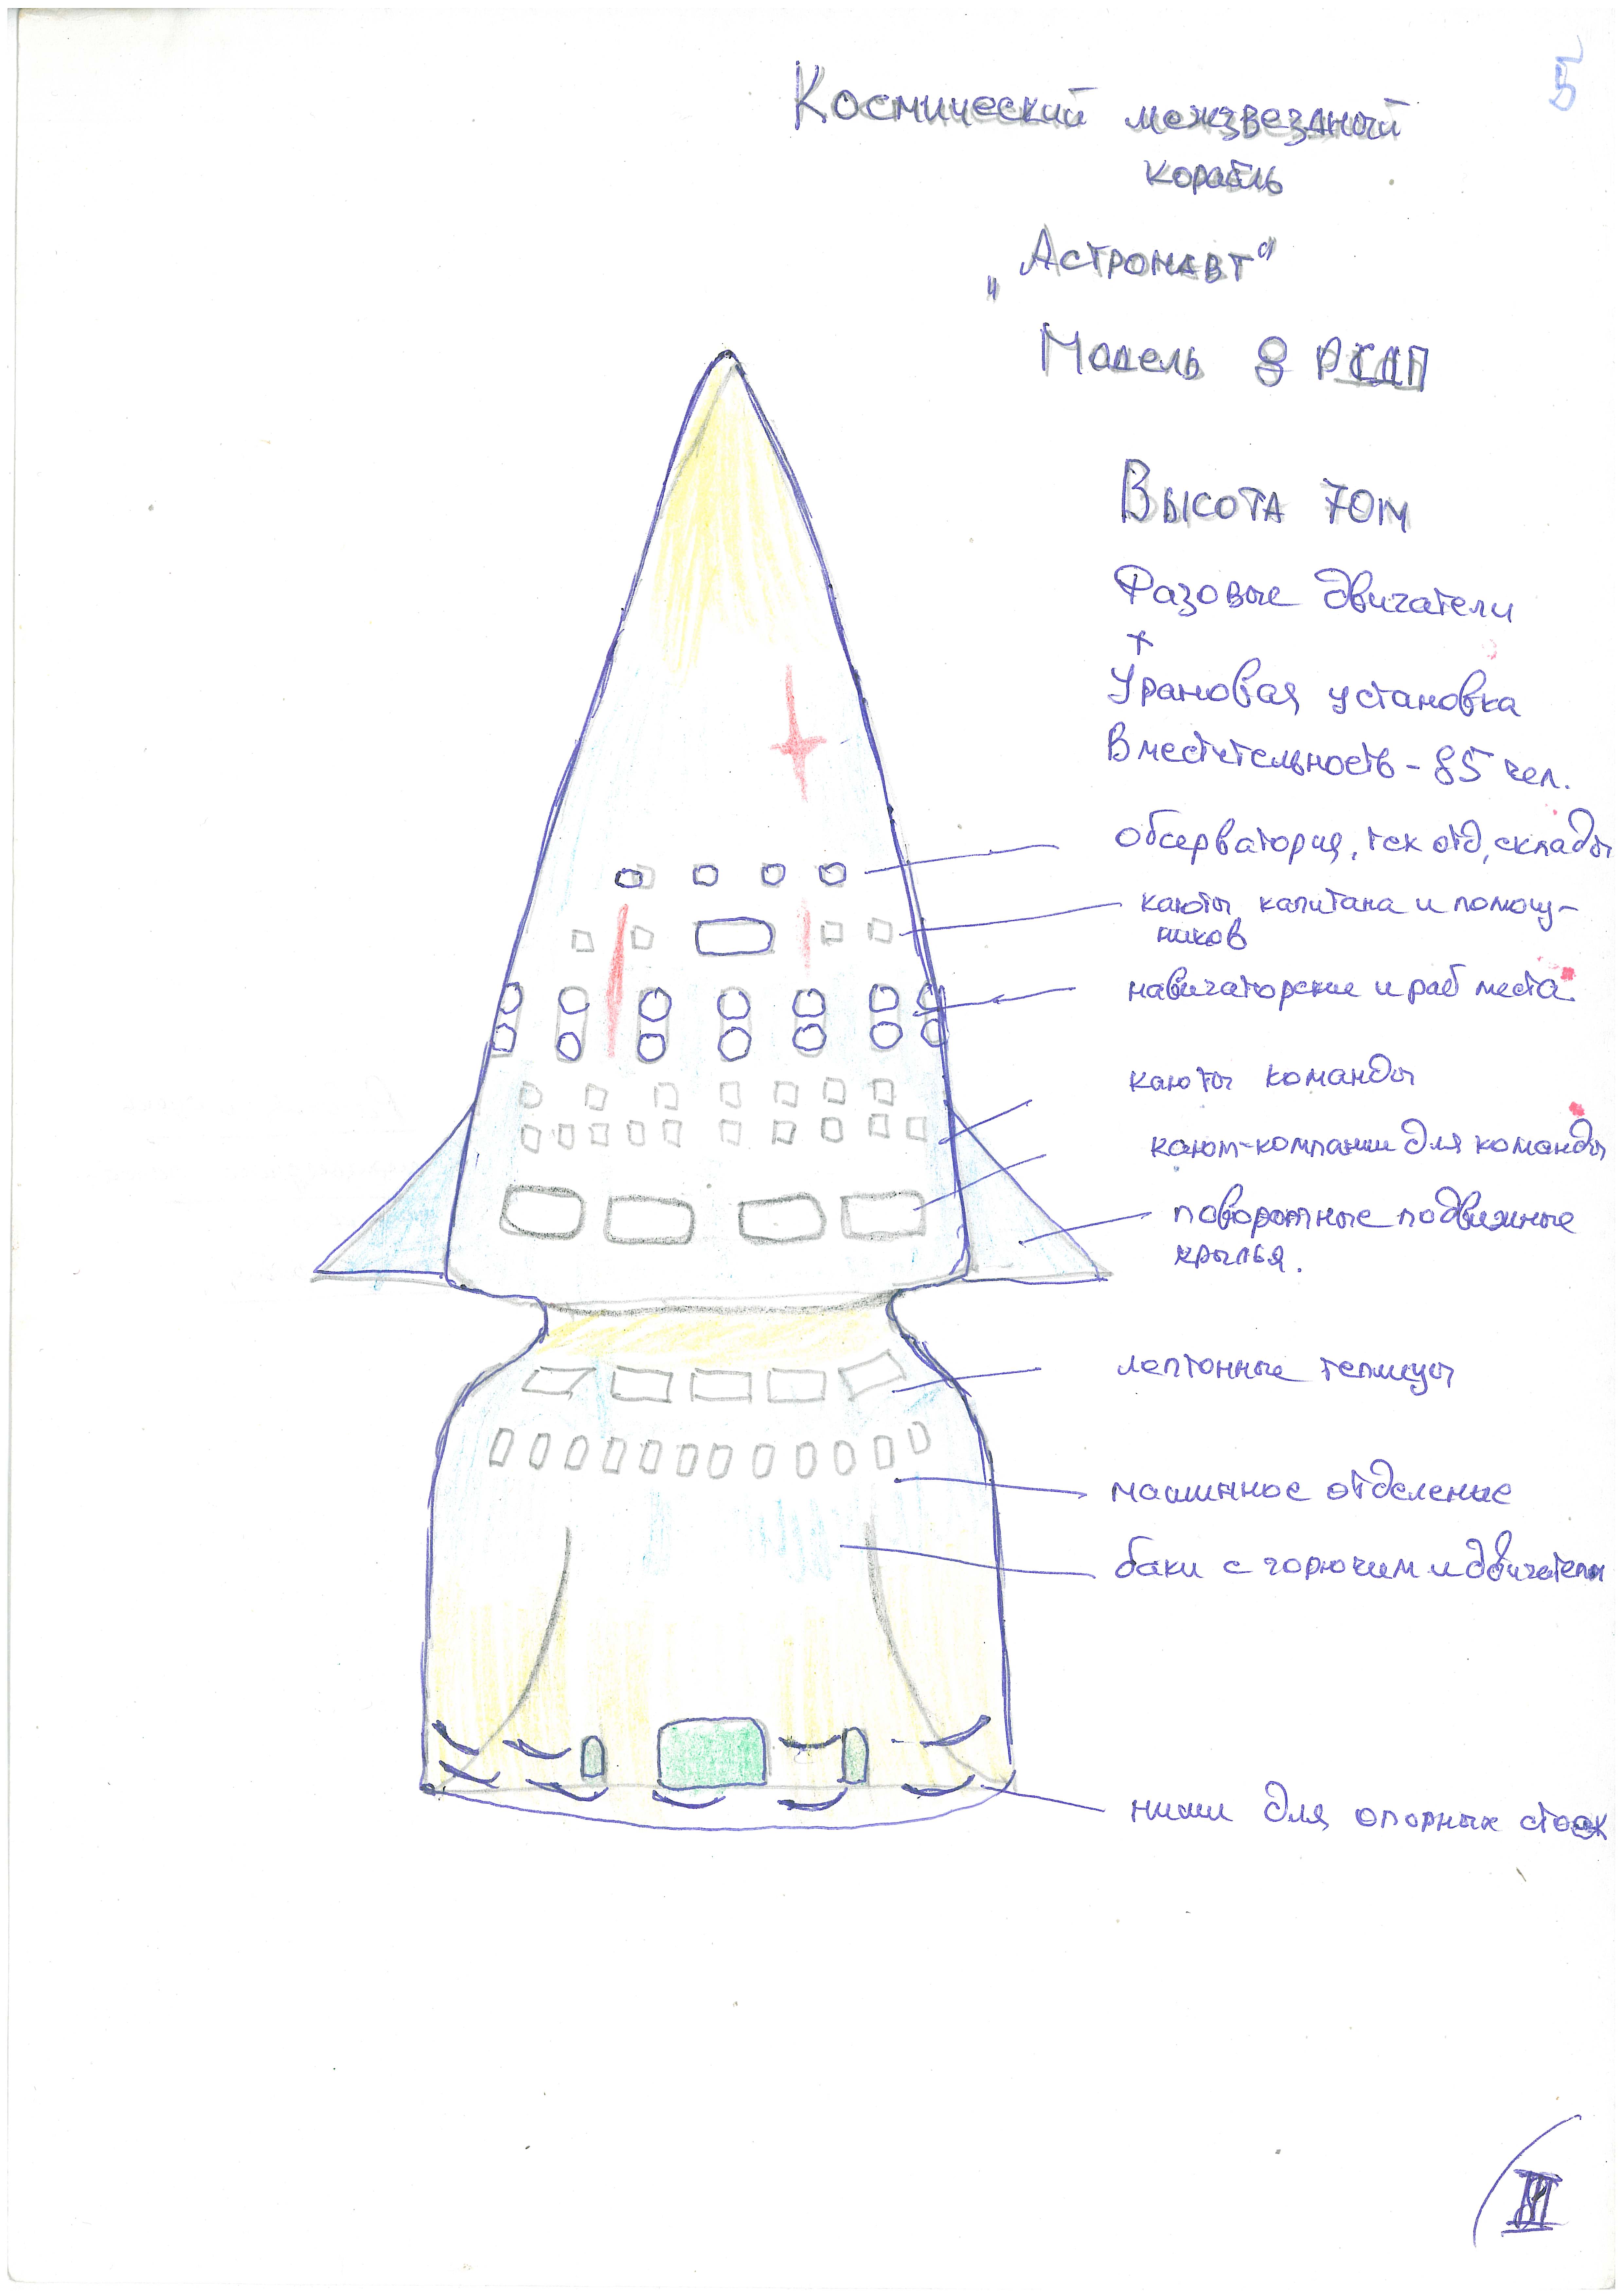 5
Космический межзвездный
корабль
„Астронавт“
Модель 8 РСДП
Высота 70м
Фазовые двигатели
+
Урановая установка
Вместительность - 85 чел.
обсерватория, тех отд, склады
каюты капитана и помощ-
ников
навигаторские и раб места
каюты команды
кают-компании для команды
поворотные подвижные
крылья.
лептонные теплицы
машинное отделение
баки с горючим и двигатели
ниши для опорных стоек